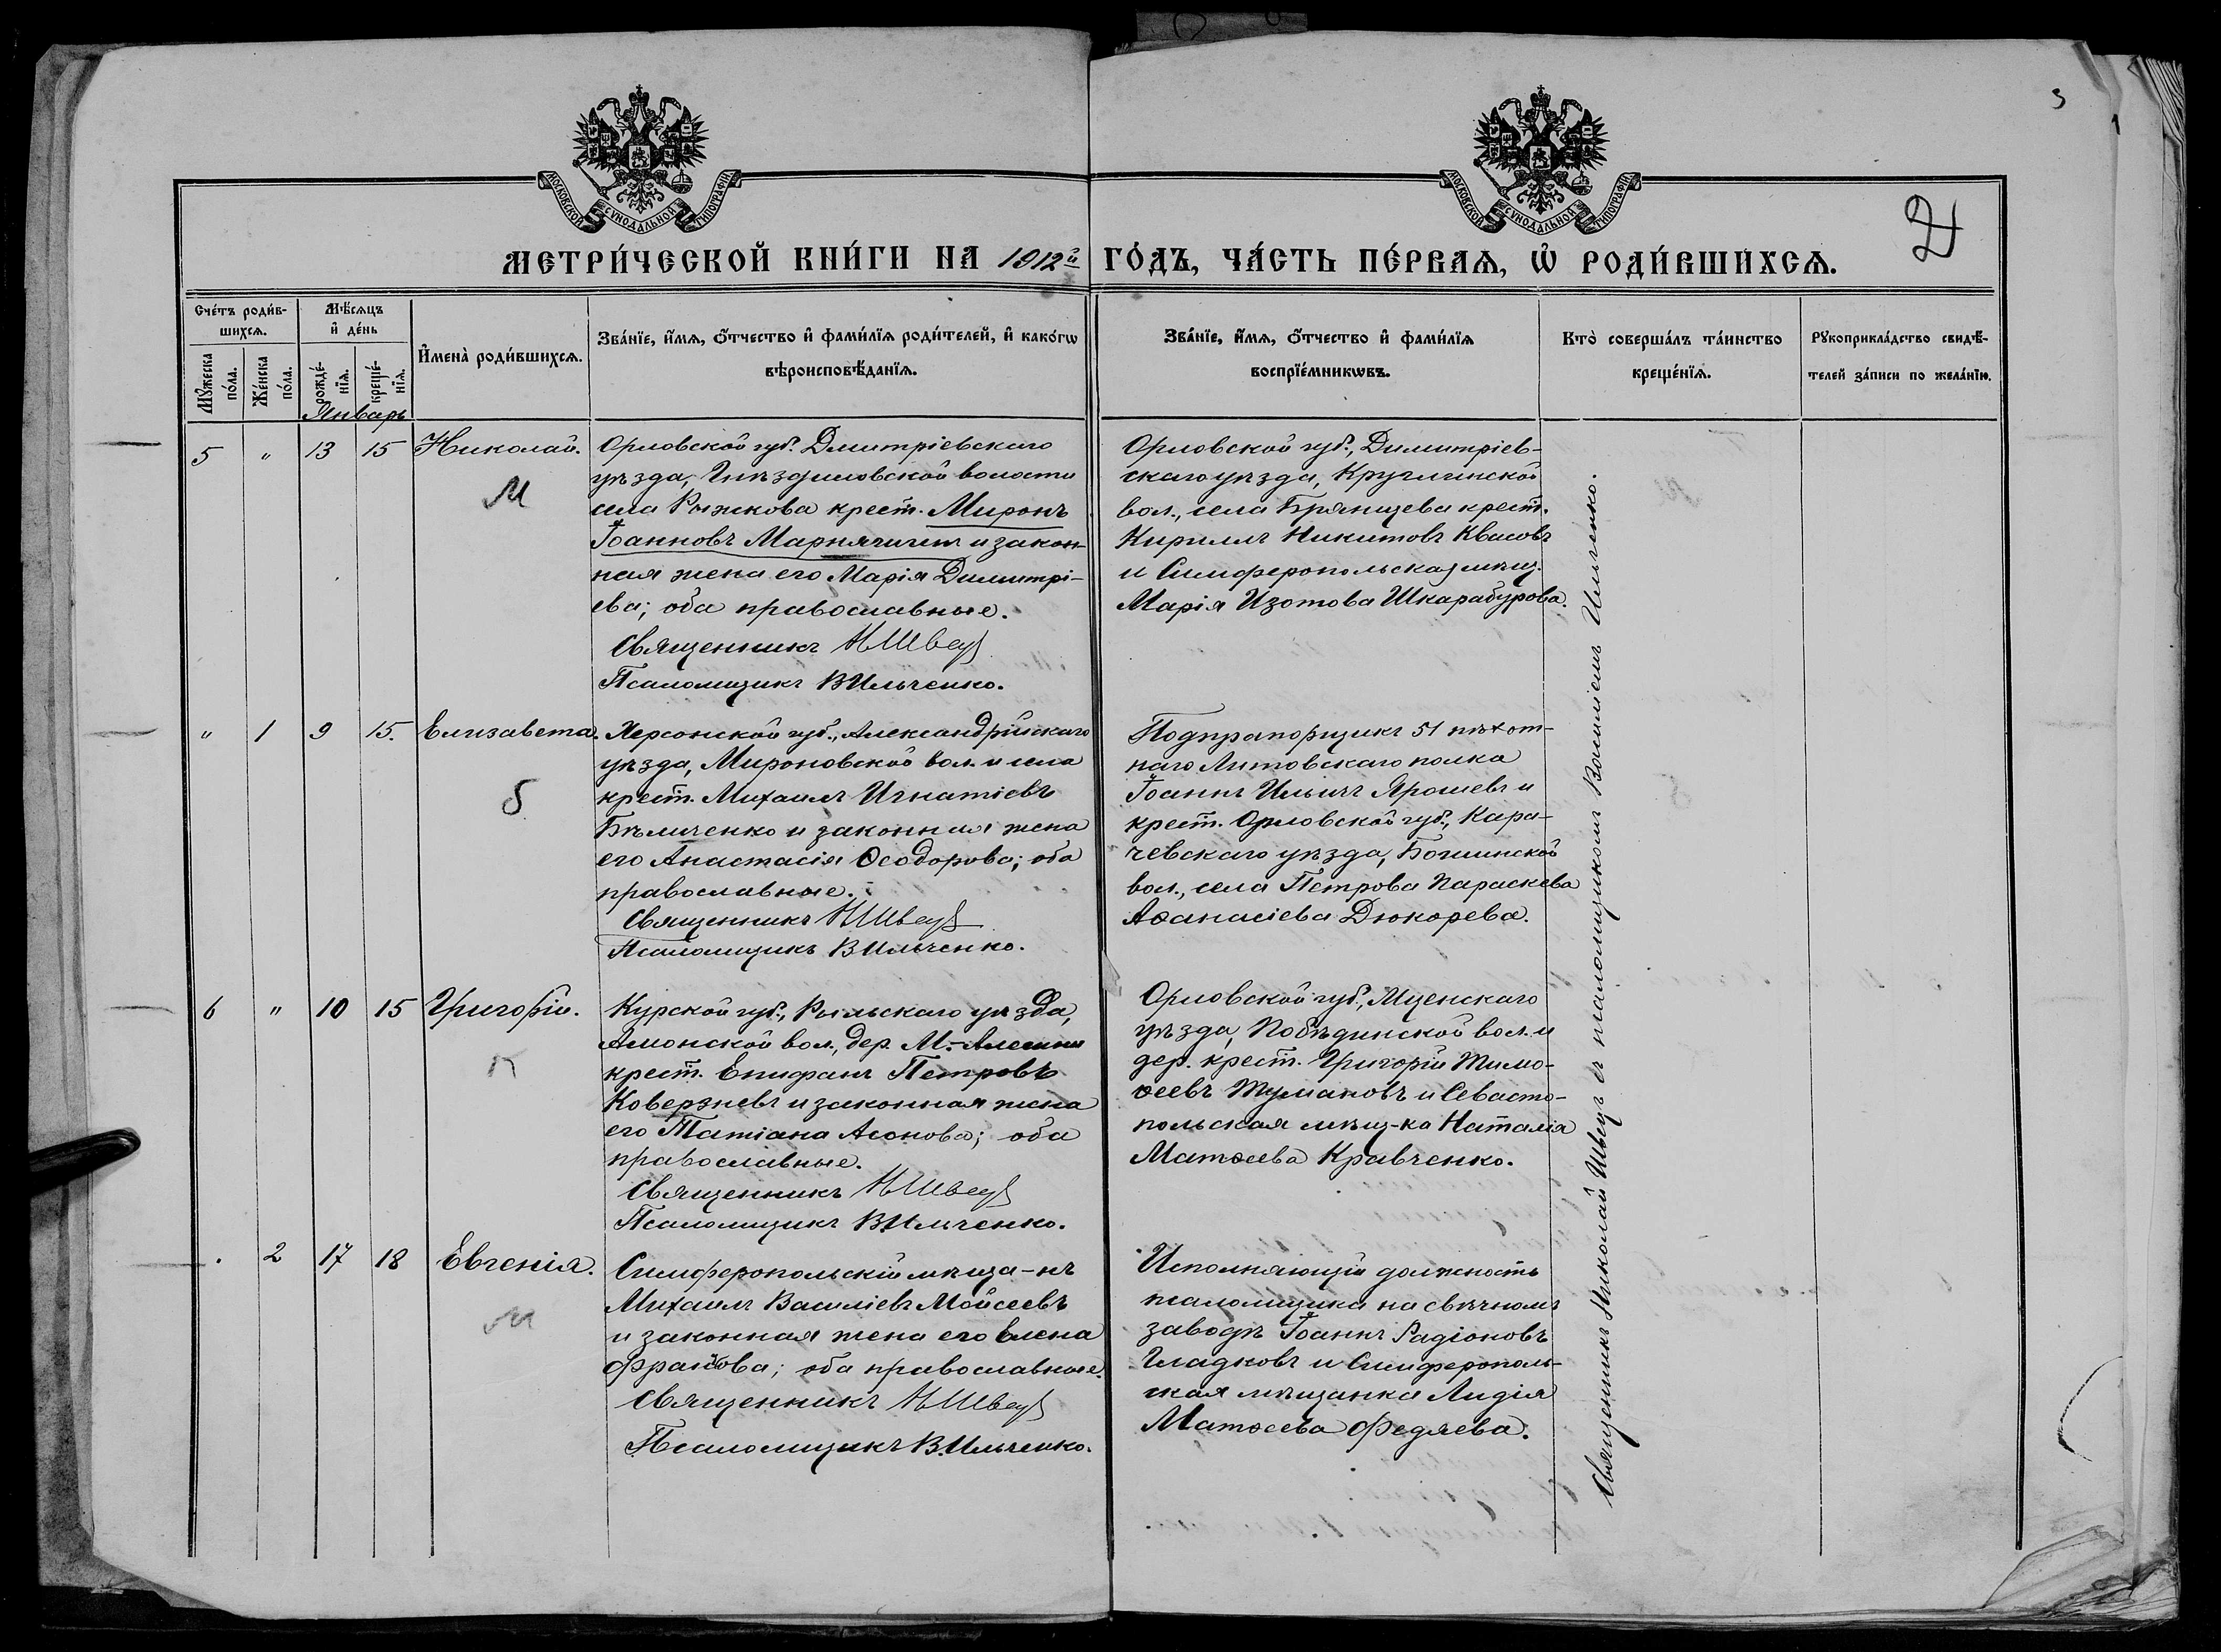 3
1
МОСКОВСКОЙ СѴНОДАЛЬНОЙ ТИПОГРАФІИ
МОСКОВСКОЙ СѴНОДАЛЬНОЙ ТИПОГРАФІИ
2
МЕТРИ́ЧЕСКОЙ КНИ́ГИ НА 1912й ГО́ДЪ, ЧА́СТЬ ПЕ́РВАѦ, Ѽ РОДИ́ВШИХСѦ.
Сче́тъ роди́в-
шихсѧ.
Мꙋ́жеска
по́ла.
Же́нска
по́ла.
Мѣ́сѧцъ
и҆ де́нь
рожде́-
нїѧ.
креще́-
нїѧ.
И҆мена̀ роди́вшихсѧ.
Зва́нїе, и҆́мѧ, ѻ҆́тчество и҆ фами́лїѧ роди́телей, и҆ како́гѡ
вѣроисповѣ́данїѧ.
Зва́нїе, и҆́мѧ, ѻ҆́тчество и҆ фами́лїѧ
воспрїе́мникѡвъ.
Кто̀ соверша́лъ та́инство
креще́нїѧ.
Рꙋкоприкла́дство свидѣ́-
телей за́писи по жела́нїю.
Январь
5 " 13 15 Николай.
М
Орловской губ. Дмитріевскаго
уѣзда, Гнѣздиловской волости
села Рыжкова крест. Миронъ
Іоанновъ и закон-
ная жена его Марія Димитрі-
ева; оба православные.
Священникъ НШвец
Псаломщикъ ВИльченко.
Орловской губ., Димитріев-
скаго уѣзда, Круглинской
вол., села Брянцева крест.
Кириллъ Никитовъ Квасовъ
и Симферопольская мѣщ.
Марія Изотова Шкарабурова.
" 1 9 15. Елизавета.
Б
Херсонской губ., Александрійскаго
уѣзда, Мироновской вол. и села
крест. Михаилъ Игнатіевъ
Бѣличенко и законная жена
его Анастасія Ѳеодорова; оба
православные.
Священникъ НШвец
Псаломщикъ ВИльченко.
Подпрапорщикъ 51 пѣхот-
наго Литовскаго полка
Іоаннъ Ильичъ Ярошевъ и
крест. Орловской губ., Кара-
чевскаго уѣзда,
вол., села Петрова Параскева
Аѳанасіева Дюкарева.
6 " 10 15 Григорій.
К
Курской губ., Рыльскаго уѣзда,
Амонской вол., дер. М.-Алешни
крест. Епифанъ Петровъ
Ковержневъ и законная жена
его Татіана Агонова; оба
православные.
Священникъ НШвец
Псаломщикъ ВИльченко.
Орловской губ., Мценскаго
уѣзда, Побѣдинской вол. и
дер. крест. Григорій Тимо-
ѳеевъ Тумановъ и Севасто-
польская мѣщ-ка Наталія
Матѳеева Кравченко.
. 2 17 18 Евгенія.
М
Симферопольскій мѣща-нъ
Михаилъ Василіевъ Мойсеевъ
и законная жена его Елена
оба православные.
Священникъ НШвец
Псаломщикъ В.Ильченко.
Исполняющій должность
псаломщика на свѣчномъ
заводѣ Іоаннъ Радіоновъ
Гладковъ и Симферополь-
ская мѣщанка Лидія
Матѳеева Федяева.
Священникъ Николай Швецъ съ псаломщикомъ Василіемъ Ильченко.